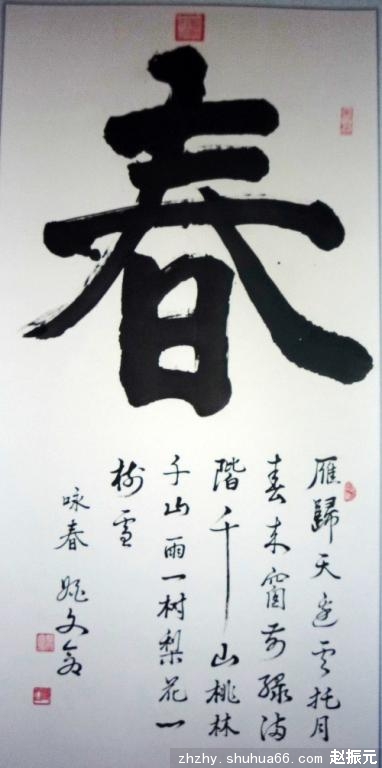 春
雁歸天云托月
春来窗前綠满
階千山桃林
千山雨一树梨花一
樹雪
咏春 姚文
zhzhy.shuhua66.com 赵振元